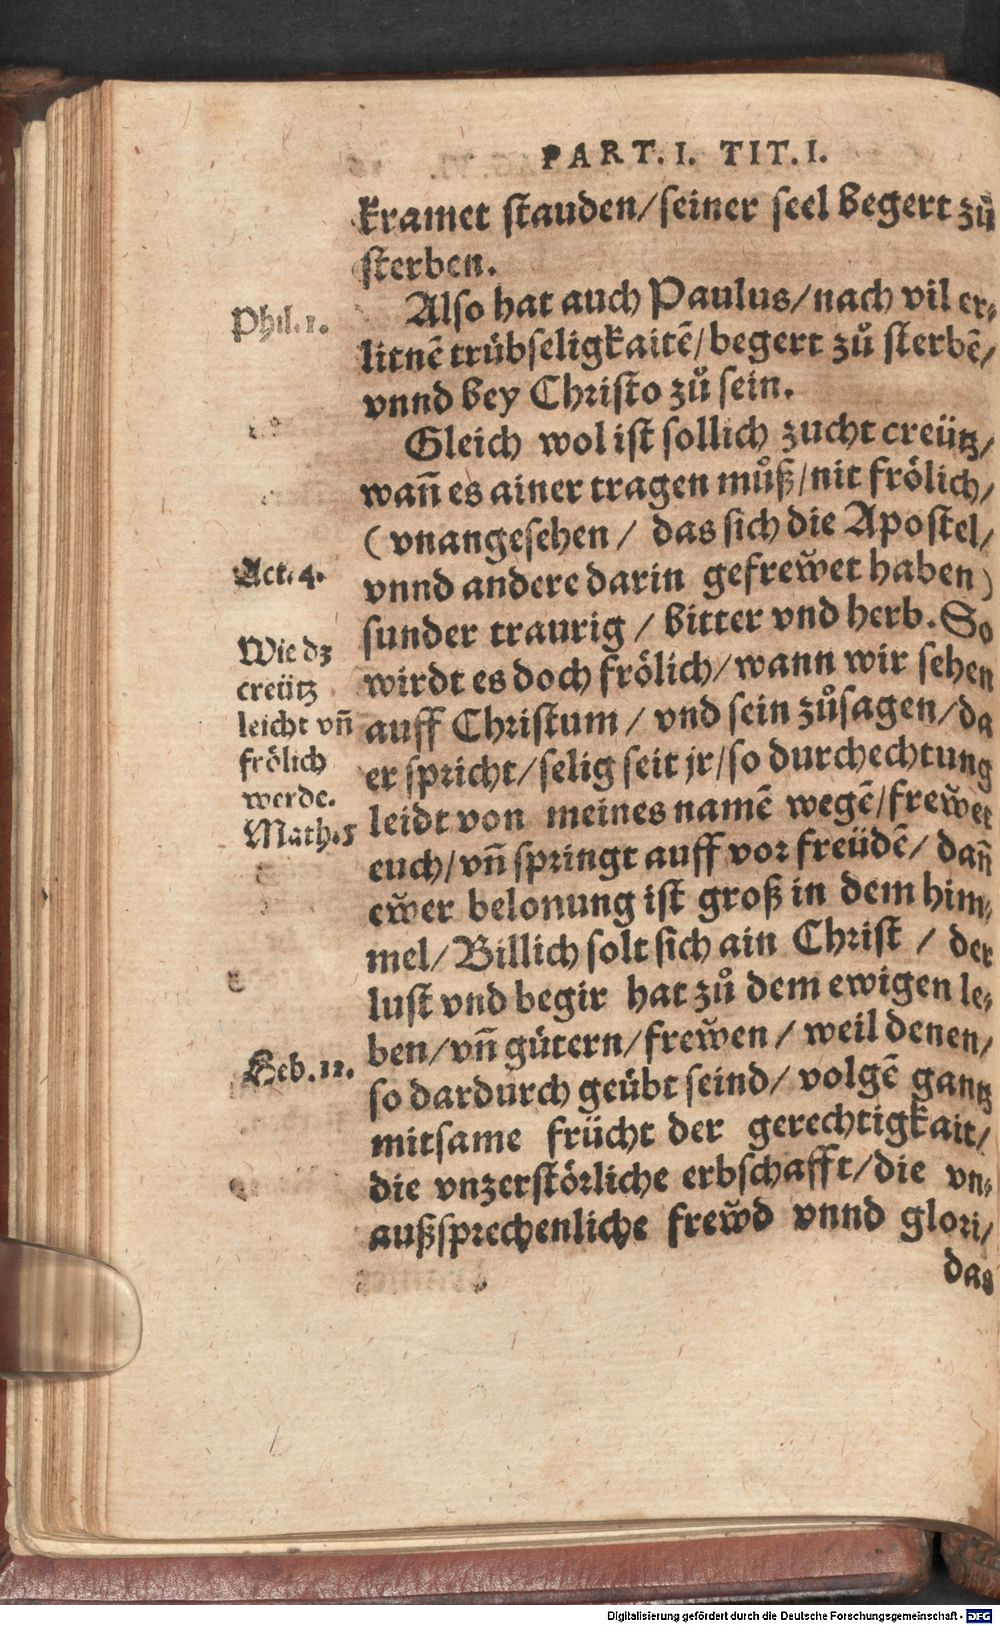 PART. I. TIT. I.
kramet stauden/seiner seel begert zů
sterben.
Also hat auch Paulus/nach vil er⸗
Phil. 1.
litnē trübseligkaitē/begert zů sterbē/
vnnd bey Christo zů sein.
Gleich wol ist sollich zucht creütz/
wañ es ainer tragen můß/nit frölich/
(vnangesehen/ das sich die Apostel/
Act. 4.
vnnd andere darin gefrew̆et haben)
sunder traurig / bitter vnd herb. So
wirdt es doch frölich/wann wir sehen
auff Christum / vnd sein zůsagen/da
er spricht/selig seit jr/so durchechtung
leidt von meines namē wegē/frew̆et
Wie dz
creütz
leicht vñ
frölich
werde.
Math. 5
euch/vñ springt auff vor freüdē/ dañ
ew̆er belonung ist groß in dem him⸗
mel/Billich solt sich ain Christ / der
lust vnd begir hat zů dem ewigen le⸗
ben/vñ gütern/frew̆en / weil denen/
Heb. 12.
so dardurch geübt seind/ volgē gantz
mitsame frücht der gerechtigkait/
die vnzerstörliche erbschafft/die vn⸗
außsprechenliche frew̆d vnnd glori/
das
Digitalisierung gefördert durch die Deutsche Forschungsgemeinschaft - DFG